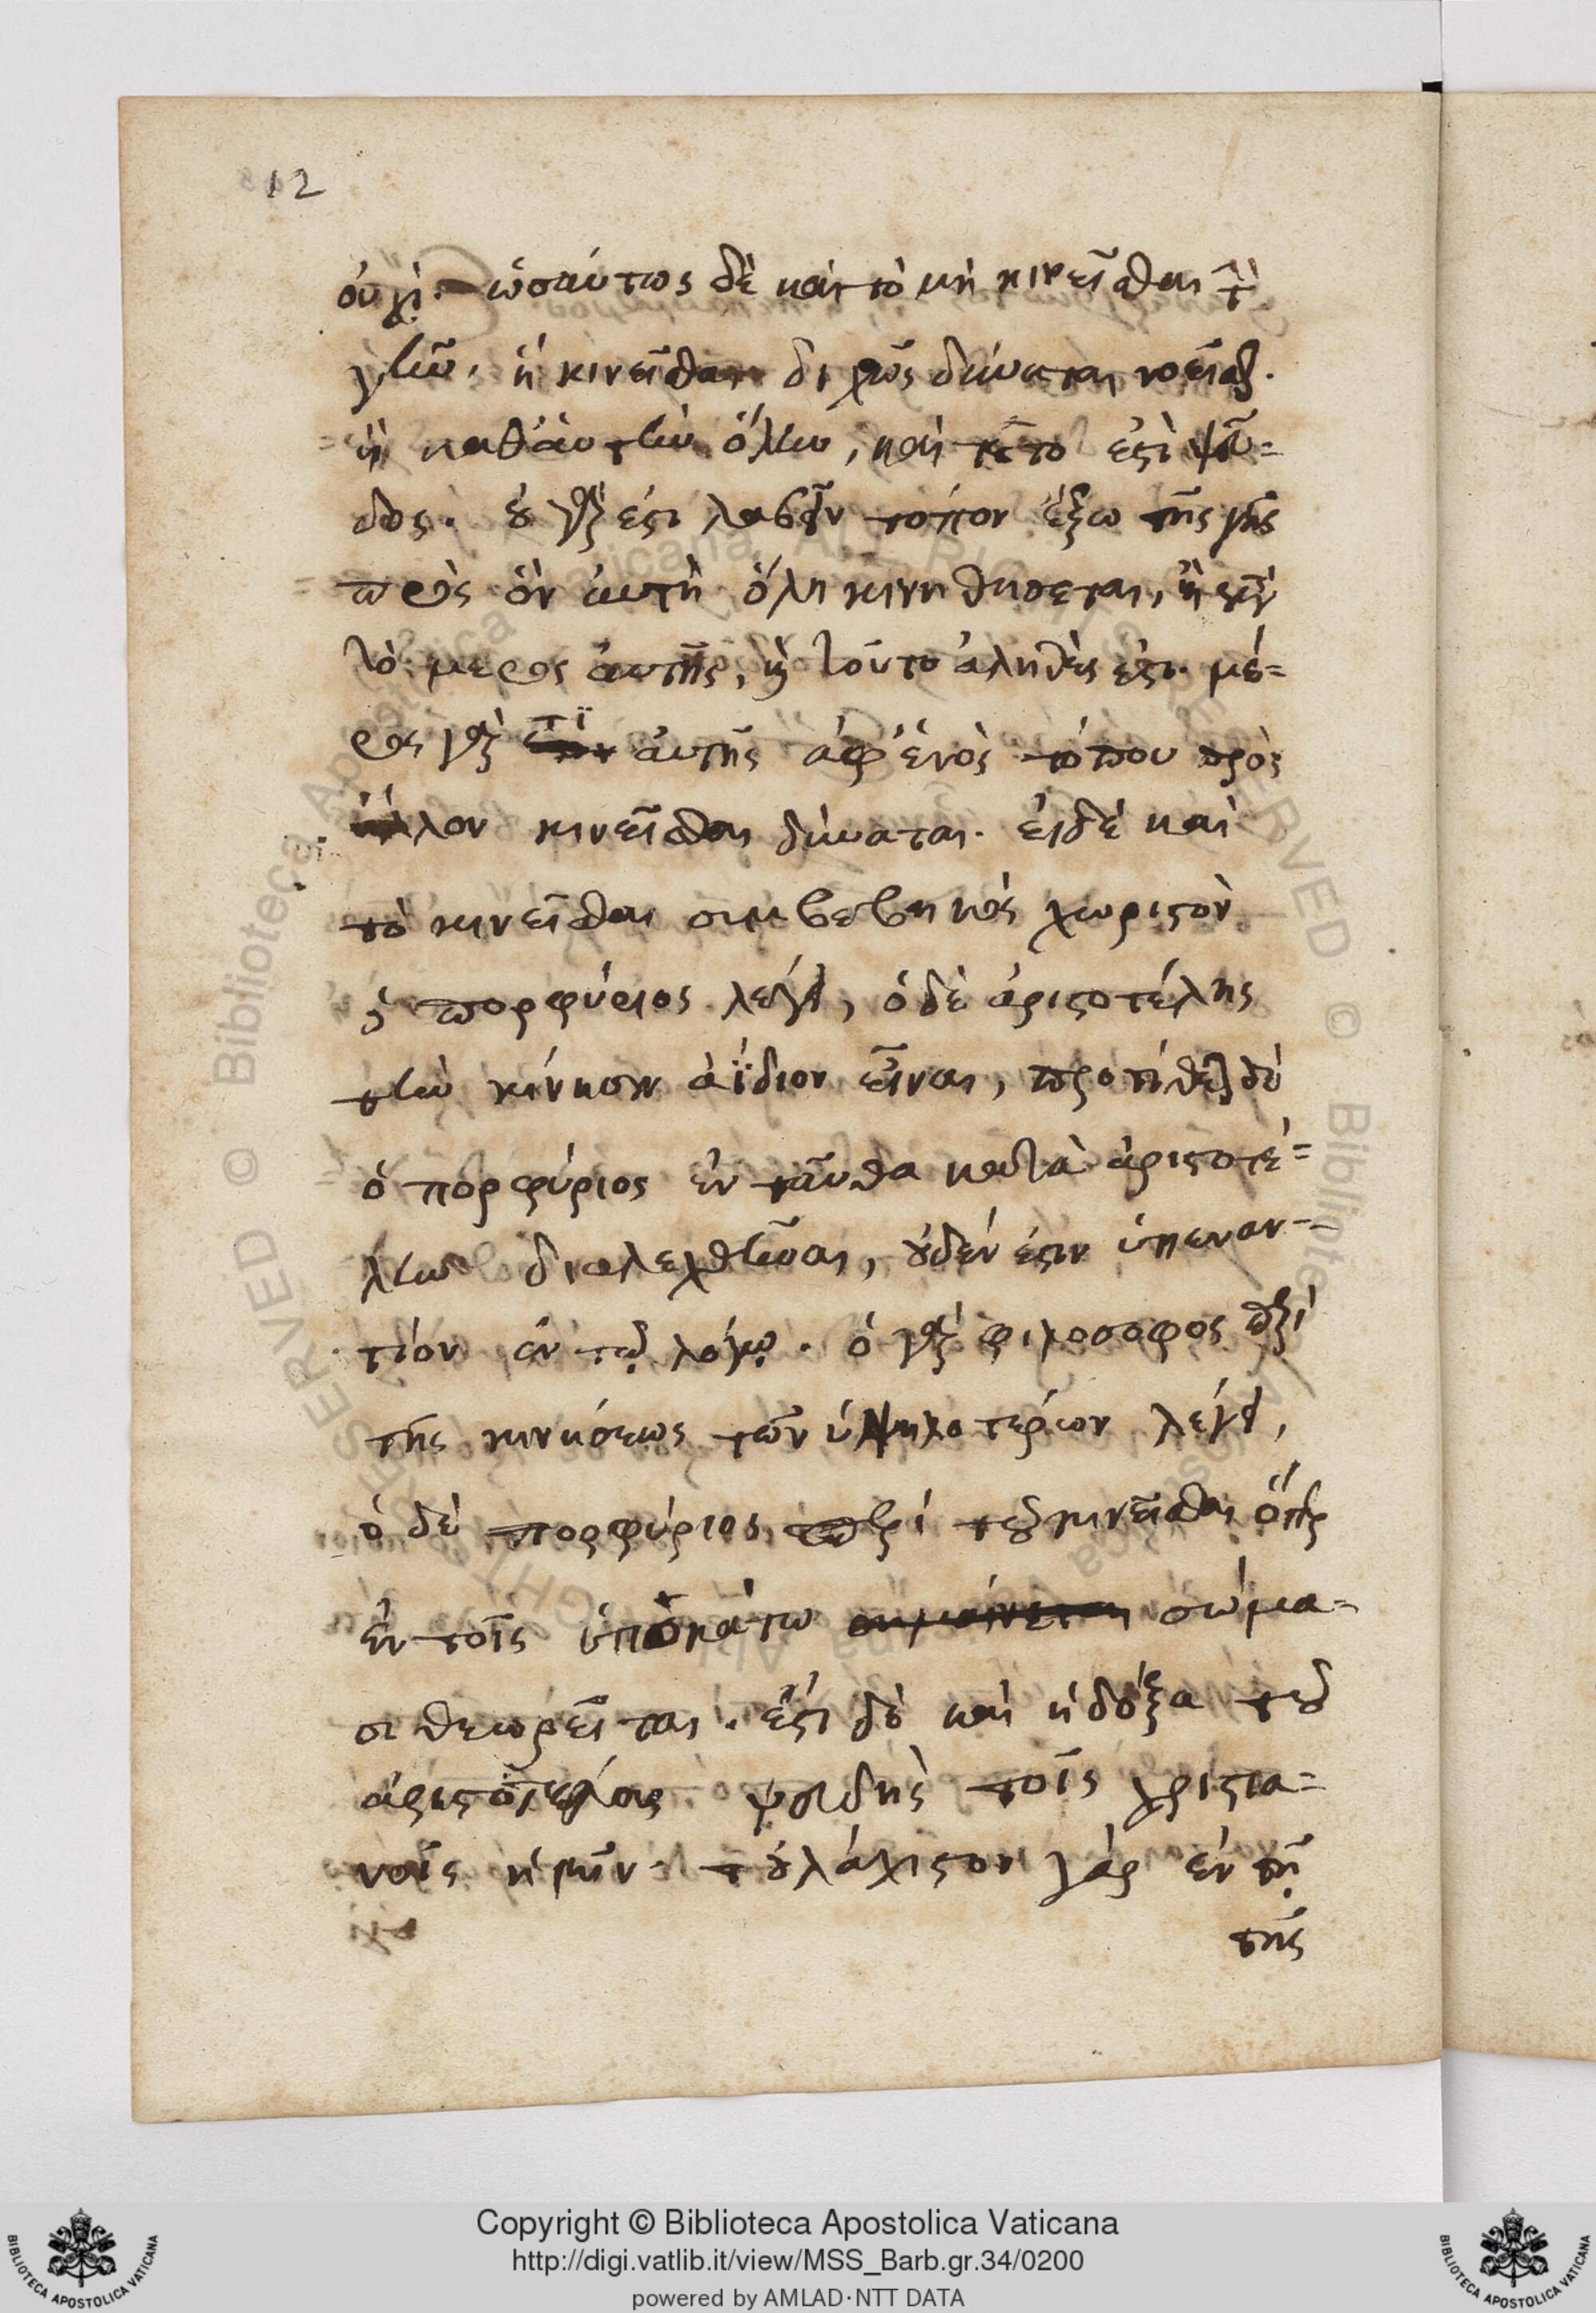 12
οὐχί. ὡσαύτως δὲ καὶ τὸ μὴ κινεῖσθαι τὴν
γῆν, ἢ κινεῖσθαι διχῶς δύναται νοεῖσθαι.
ἢ καθ' ἁυτὴν ὅλην, καὶ τοῦτο ἐστὶ ψεῦ=
δος. οὐ γὰρ ἐστι λαβεῖν τόπον ἔξω τῆς γῆς
πρὸς ὃν ἀυτὴ ὅλη κινηθήσεται, ἢ κατὰ
τὸ μέρος ἀυτῆς, καὶ τοῦτο ἀληθές ἐστι. μέ=
ρος γάρ τι ἀυτῆς ἀφ' ἑνὸς τόπου πρὸς
ἄλλον κινεῖσθαι δύναται. ἐι δὲ καὶ
τὸ κινεῖσθαι συμβεβηκὸς χωριστὸν
ὁ πορφύριος λέγει, ὁ δὲ ἀριστοτέλης
τὴν κίνησιν ἀΐδιον εἶναι,
ὁ πορφύριος ἐνταῦθα κατὰ ἀριστοτέ=
λην διαλεχθῆναι, οὐδέν ἐστιν ὑπεναν=
τίον ἐν τῷ λόγῳ. ὁ γὰρ φιλόσοφος περὶ
τῆς κινήσεως τῶν ὑψηλοτέρων λέγει,
ὁ δὲ πορφύριος περὶ τοῦ κινεῖσθαι ὅπερ
ἐν τοῖς ὑποκάτω σώμα=
σι θεωρεῖται. ἔστι δὲ καὶ ἡ δόξα τοῦ
ἀριστοτέλους ψευδὴς τοῖς χριστια=
νοῖς ἡμῖν. τοὐλάχιστον γὰρ ἐν τῇ
τῆς
Copyright © Biblioteca Apostolica Vaticana
http://digi.vatlib.it/view/MSS_Barb.gr.34/0200
powered by AMLAD·NTT DATA